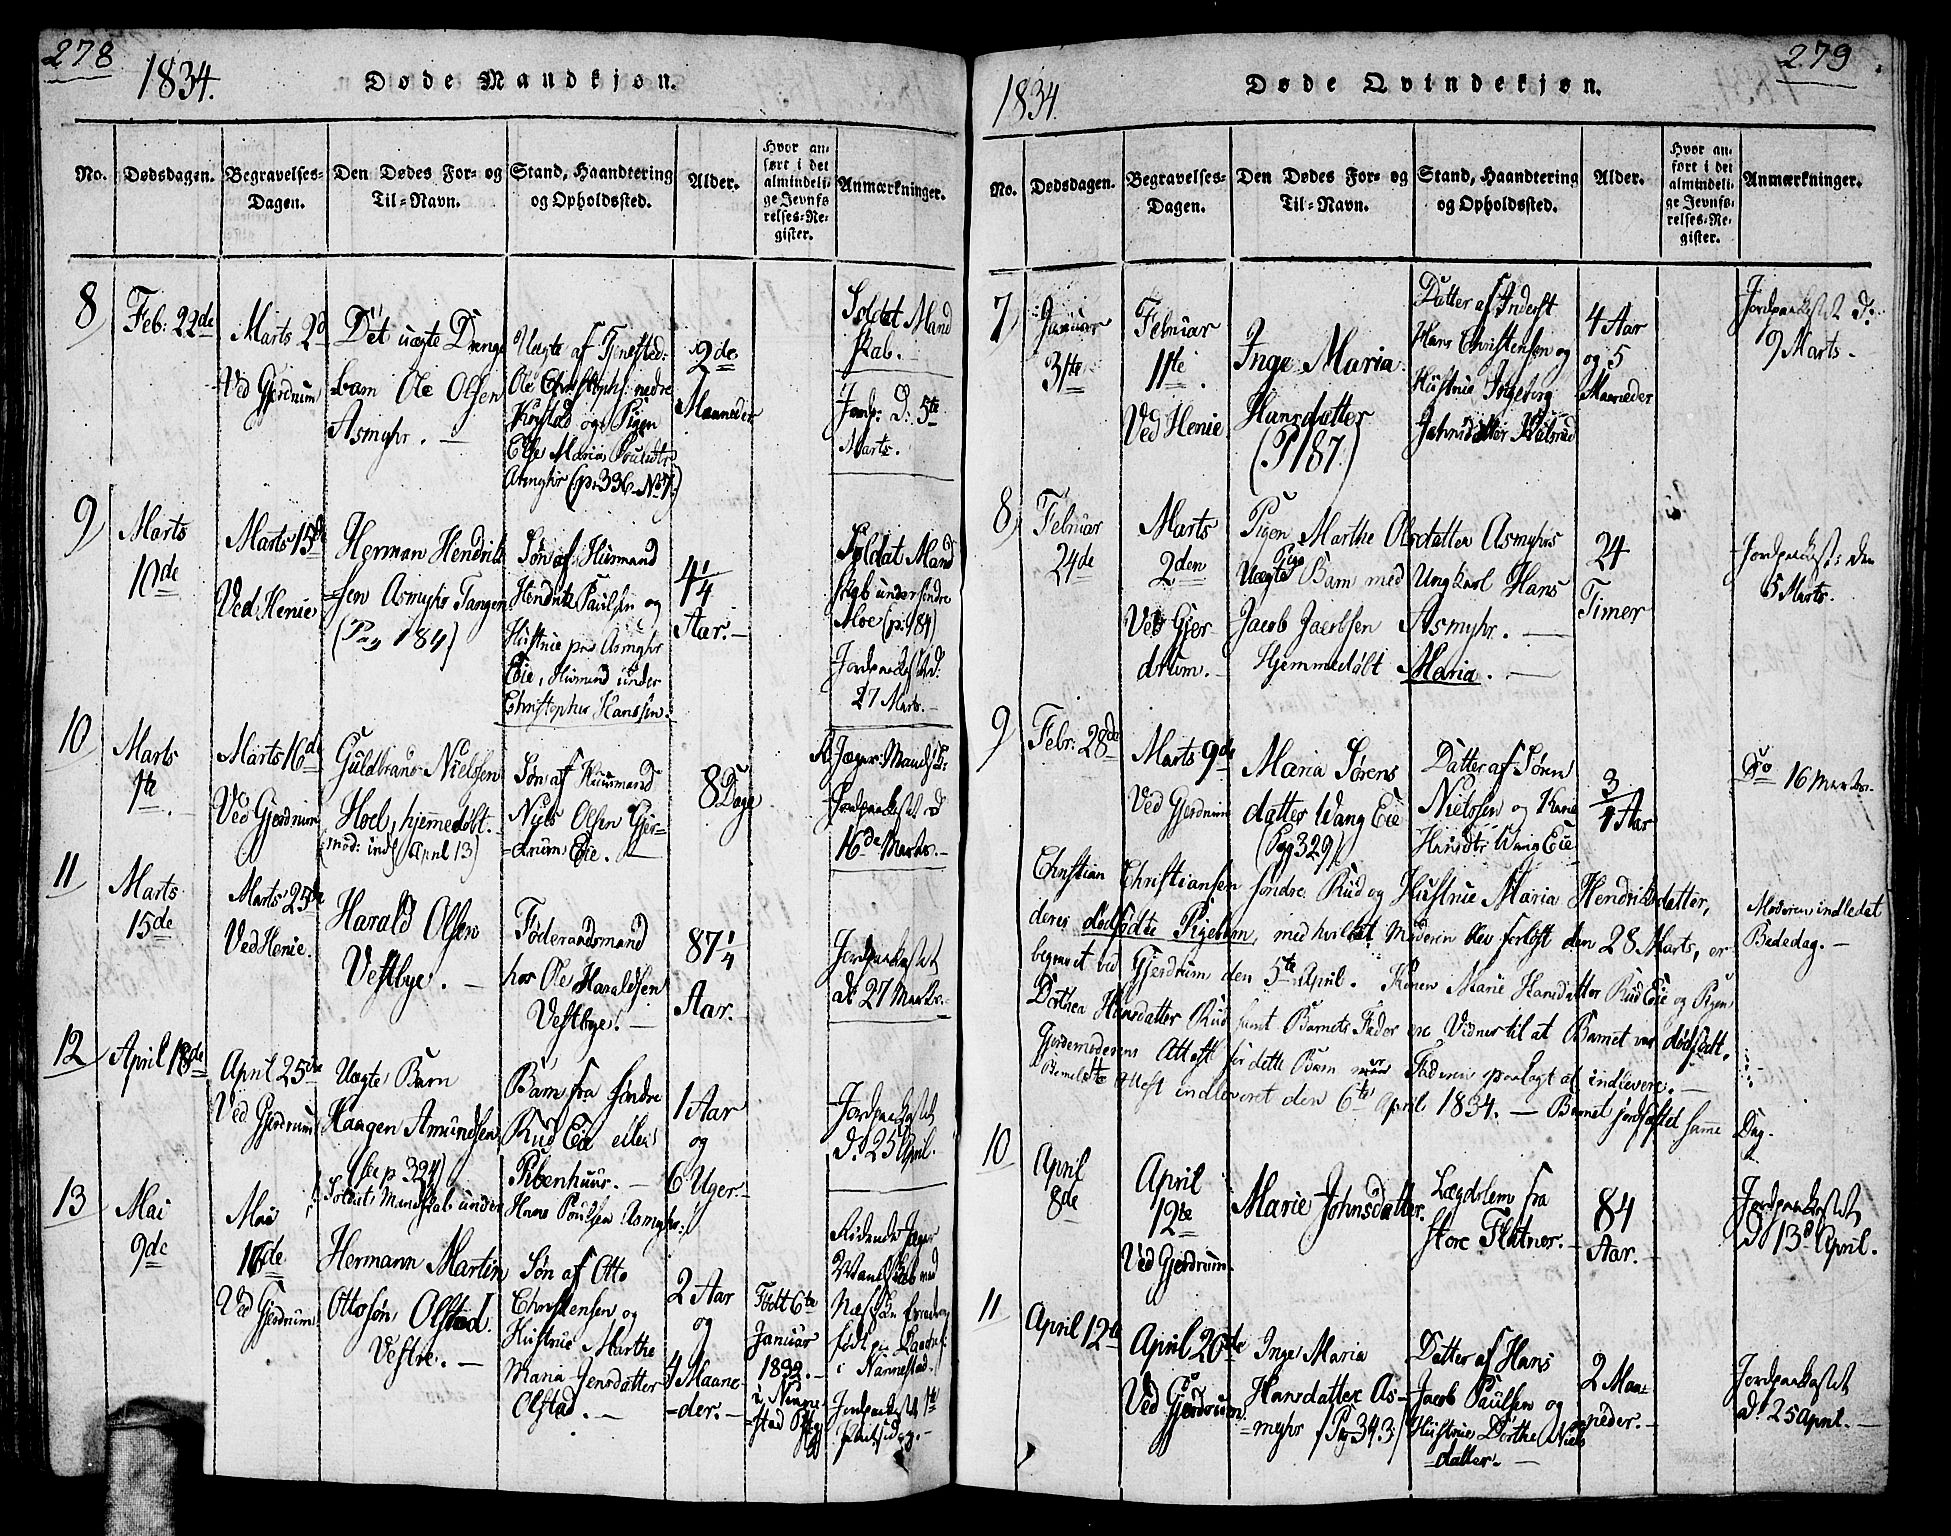 278
1834.
Døde Mandkjøn.
No.
Dødsdagen.
Begravelses-
Dagen.
Den Dødes For- og
Til-Navn.
Stand, Haandtering
og Opholdssted.
Alder.
Hvor an-
ført i det
almindeli-
ge Jevnfø-
relses-Re-
gister.
Anmærkninger.
8
Feb: 22de
Marts 2d
Ved Gjerdrum
Det uægte Drenge
barn Ole Olsen
Asmyhr. —
Uægte af
Ole Christophs: nedre
og Pigen
Else Maria Poulsdtr
Asmyhr (p: 336 No 7.)
2de
Maaneder
Soldat Mand
skab. —
Jordp: D: 5te
Marts.
9
Marts
10de
Marts 15de
Ved Henie
Herman Hendrik
=sen Asmyhr Tangen
(Pag 184)
Søn af Huusmand
Hendrik Paulsen og
Hustrue paa Asmyhr
Eie, Huusmand under
Christopher Hanssen.
4 1/4
Aar. —
Soldat Mand
skab under søndre
Moe (p: 184)
Jordpaakastet d:
27 Marts. —
10
Marts
1te
Marts 16de
Ved Gjerdrum
Guldbrand Nielssen
Hoel, hjemmedøbt.
April 13)
Søn af Huusmand
Niels Olsen Gjer-
=drum Eie. —
8 Dage
R. Jæger: Mandsk:
Jordpaakastet d
16de Marts. —
11
Marts
15de
Marts 25de
Ved Henie.
Harald Olsen
Vestbye. —
Føderaadsmand
hos Ole Haraldsen
Vestbye. —
87 1/4
Aar. —
Jordpaakastet
d: 27 Marts. —
12
April 18de
April 25de
Ved Gjerdrum
Uægte Barn
Haagen Amundsen
(see p 324)
Barn fra søndre
Rud Eie eller
Pibenhuus. —
1 Aar
og
6 Uger. —
Jordpaakastet
d: 25 April.
13
Mai
9de
Mai
16de
Ved Gjerdrum
Soldat: Mandskab under
Hans Poulsen Asmyhr.
Hermann Martin
Ottosøn Olstad
Vestre. —
Søn af Otto
Christensen og
Hustrue Marthe
Maria Jensdatter
Olstad. —
2 Aar
og
4 Maane-
=der. —
Født 6te
Januar
1832. —
i Nanne-
stad
Ridende Jæger
Mandskab med
født
i Nannestad.
Jordpaakastet
279
1834.
Døde Qvindekjøn.
No.
Dødsdagen.
Begravelses-
Dagen.
Den Dødes For- og
Til-Navn.
Stand, Haandtering
og Opholdssted.
Alder.
Hvor an-
ført i det
almindeli-
ge Jevnfø-
relses-Re-
gister.
Anmærkninger.
7
Januar
31te
Februar
11te
Ved Henie
Inge Maria
Hansdatter
(P 187.)
Datter af Inderst
Hans Christensen og
Hustrue Ingeborg
Johnsdatter
4 Aar
og 5
Maaneder
Jordpaakastet d:
9 Marts —
8
Februar
24de
Marts
2den
Ved Gjer-
drum. —
Pigen Marthe Olsdatter Asmyhrs
Uægte Pige Barn med Ungkarl Hans
Jacob Jacobsen Asmyhr. —
Hjemmedøbt Maria. —
24
Timer
Jordpaakast: den
5 Marts.
9
Febr: 28de
Marts 9de
Ved Gjerdrum
Maria Sørens
datter Wang Eie
(Pag 329)
Datter af Søren
Nielssen og Karie
Hansdtr Wang Eie
3/4 Aar
Do 16 Marts.
Christian Christiansen søndre Rud og Hustrue Maria Hendriksdatter,
deres dødfødte Pigebarn, med hvilket Moderen blev forløst den 28 Marts, er
begravet ved Gjerdrum den 5te April. Konen Marie Hansdatter Rud Eie og Pigen
Dorthea Hansdatter Rud samt Barnets Fader ere Vidner til at Barnet var dødfødt.
Gjordemoderens Attest for dette Barn er Faderen paalagt at indlevere. —
Attest indleveret den 6te April 1834. — Barnet jordfæstet samme Dag.
Moderen indledet
Bededag. —
10
April
8de
April
12te
Ved Gjerdrum.
Marie Johnsdatter.
Lægdslem fra
store Flatner. —
84
Aar. —
Jordpaakastet
D 13d April.
11
April 12te
April 20de
Ved Gjerdrum
Inge Maria
Hansdatter As-
=myhr (Pag 343)
Datter af Hans
Jacob Paulsen og
Hustrue Dorthe Niels
=datter. —
2 Maa-
neder. —
Jordpaakastet
d: 25 April. —